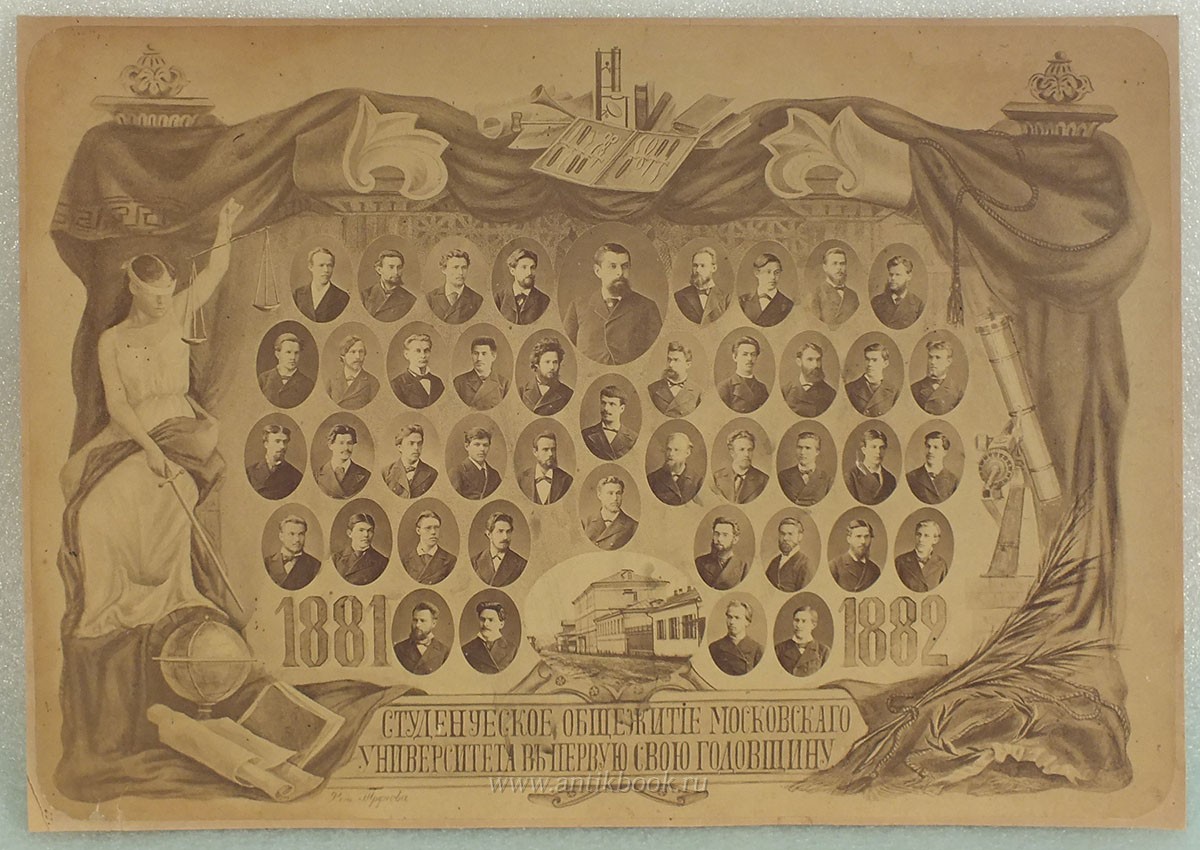 1881 1882
СТУДЕНЧЕСКОЕ ОБЩЕЖИТІЕ МОСКОВСКАГО
УНИВЕРСИТЕТА ВЪ ПЕРВУЮ СВОЮ ГОДОВЩИНУ
www.antikbook.ru